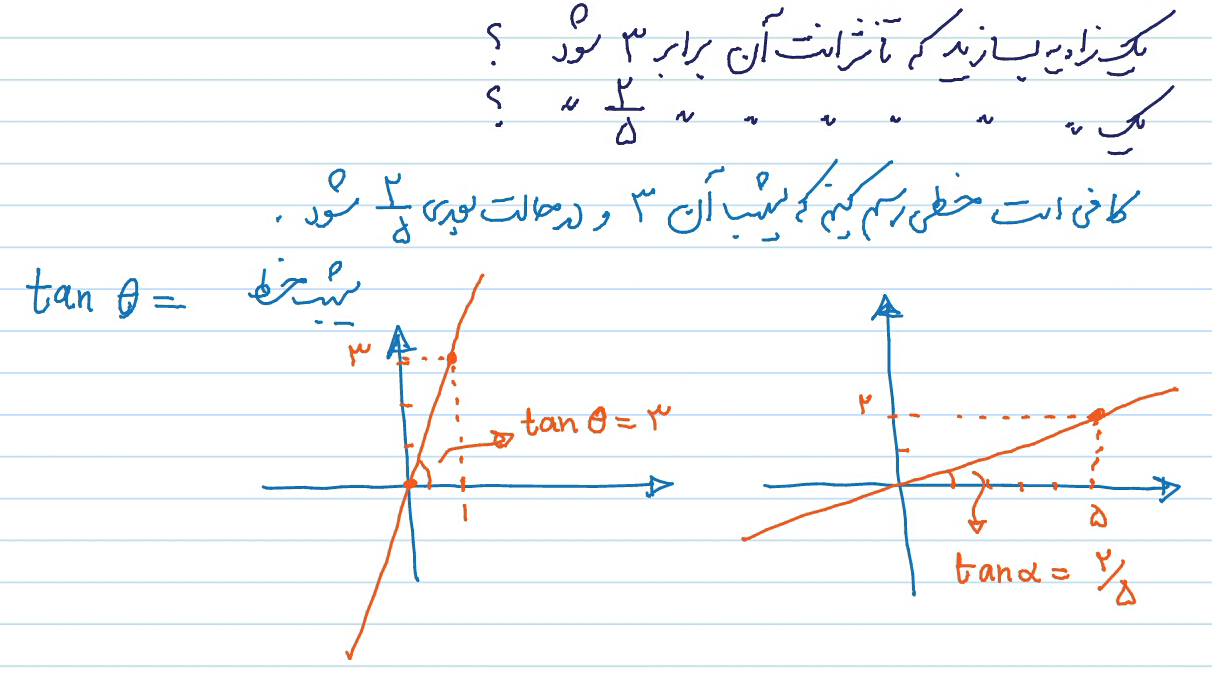 یک زاویه بسازید که تانژانت آن برابر ۳ شود ؟
یک " " " " " " ۲/۵ " ؟
کافی است خطی رسم کنیم که شیب آن ۳ و در حالت بعدی ۲/۵ شود .
tan θ = شیب خط
۳
tan θ = ۳
۱
۲
۵
tan α = ۲/۵